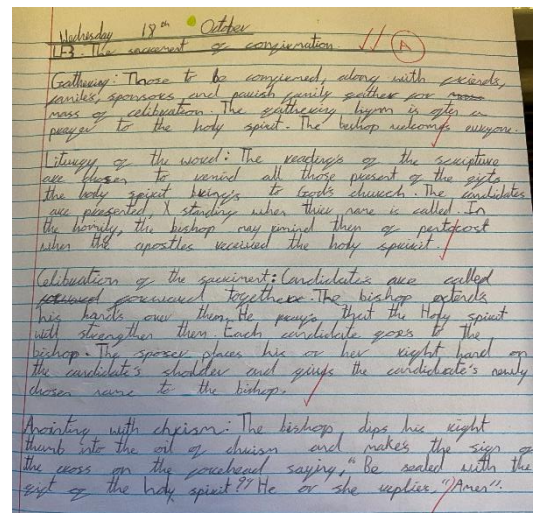 Wednesday 18th October
L3: The sacrament of confirmation A
Gathering: Those to be confirmed, along with friends,
families, sponsors and parish family gather for
mass of celibration. The gathering hymn is often a
prayer to the holy spirit. The bishop welcomes everyone.
Liturgy of the word: The reading's of the scripture
are chosen to remind all those present of the gifts
the holy spirit bring's to God's church. The candidates
are presented, X standing when their name is called. In
the homily, the bishop may remind them of pentocost
when the apostles received the holy spirit.
Celibration of the sacriment: Candidates are called
forward together. The bishop extends
his hands over them. He prays that the Holy spirit
will strengthen them. Each candidate goes to the
bishop. The sponser places his or her right hand on
the candidate's sholder and gives the candidate's newly
chosen name to the bishop.
Anointing with chrism: The bishop dips his right
thumb into the oil of chrism and makes the sign of
the cross on the forehead saying, "Be sealed with the
gift of the holy spirit." He or she replies, "Amen".